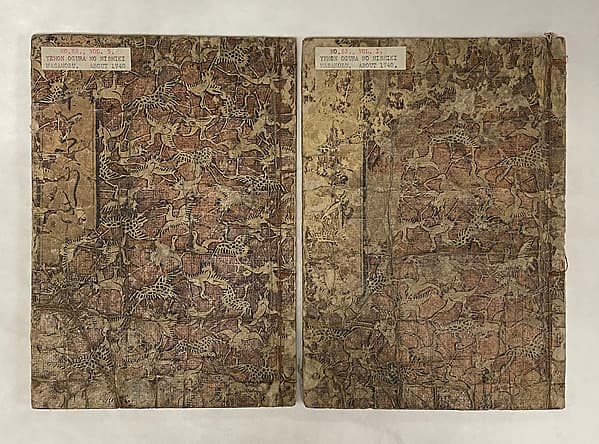 NO.62., VOL. 5.
YEHON OGURA NO NISHIKI
MASANOBU. ABOUT 1740
NO.62., VOL. 1.
YEHON OGURA NO NISHIKI
MASANOBU. ABOUT 1740.